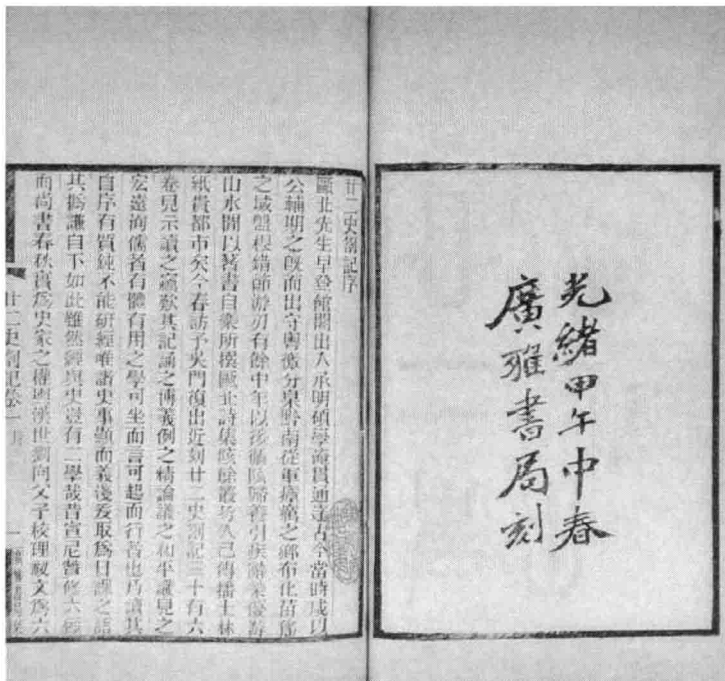 光緒甲午中春
廣雅書局刻
廿二史劄記序
甌北先生早登館閣出入承明碩學淹貫通達古今當時咸以
公輔期之旣而出守粵徼分臬黔南從軍瘴癘之鄉布化苗瑤
之域盤根錯節游刃有餘中年以後循陔歸養引疾辭榮優游
山水閒以著書自樂所撰甌北詩集陔餘叢考久已傳播士林
紙貴都市矣今春訪予吳門復出近刻廿二史劄記三十有六
卷見示讀之竊歎其記誦之博義例之精論議之和平識見之
宏遠洵儒者有體有用之學可坐而言可起而行者也乃讀其
自序有質鈍不能研經唯諸史事顯而義淺爰取爲日課之語
其撝謙自下如此雖然經與史豈有二學哉昔宣尼贊修六經
而尚書春秋實爲史家之權輿漢世劉向父子校理祕文爲六
廿二史劄記卷一
一